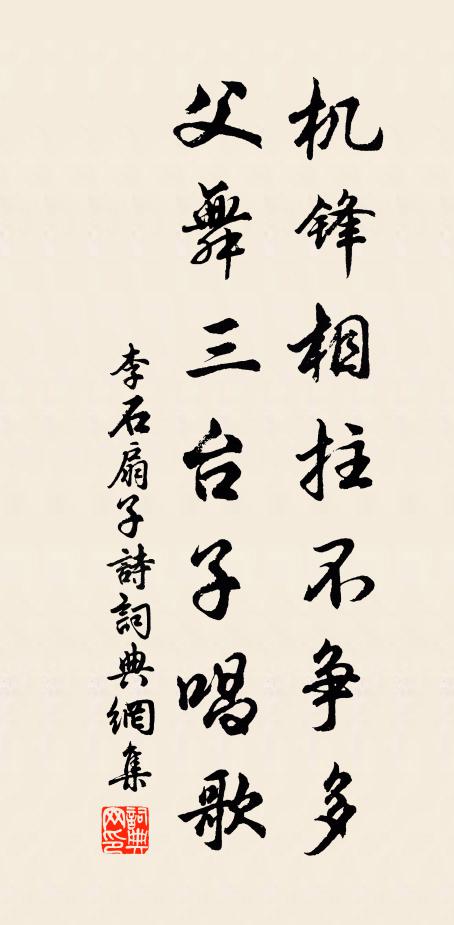 机锋相拄不争多
父舞三台子唱歌
李石扇子詩詞典網集
詞典网印